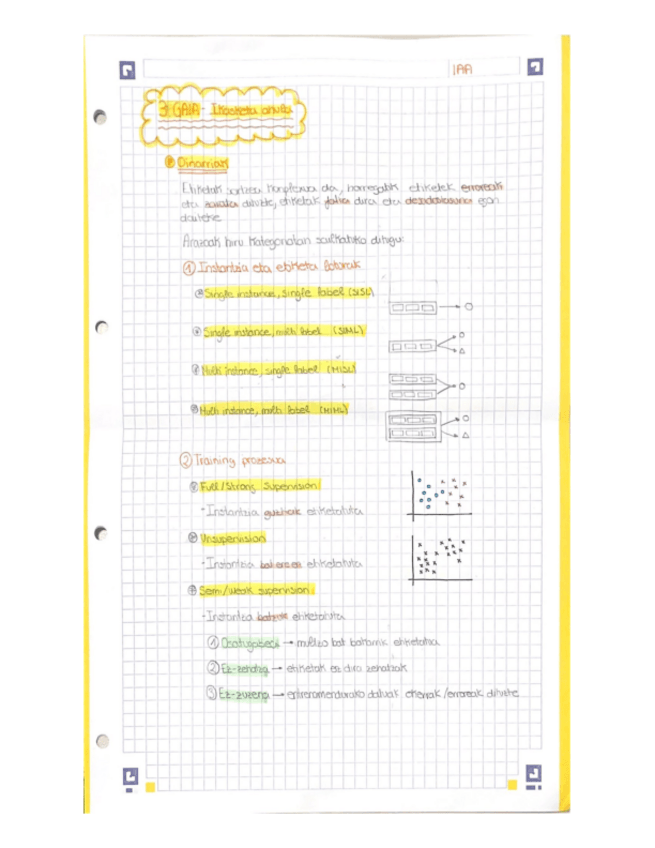 IAA
3. GAIA - Ikasketa ahula
Oinarriak
Etiketak sortzea konplexua da, horregatik etiketek erroreak
eta zarata dituzte, etiketak falta dira eta desorekatuta egon
daitezke
Arazoak hiru kategoriatan sailkatuko ditugu:
① Instantzia eta etiketa
Single instance, single label (SISL)
Single instance, multi label (SIML)
Multi instance, single label (MISL)
Multi instance, multi label (MIML)
② Training prozesua
Full/Strong Supervision
- Instantzia guztiak etiketatuta
Unsupervision
- Instantzia etiketatuta
Semi/weak supervision
- Instantzia batzuk etiketatuta
① → multzo bat bakarrik etiketatua
② Ez-zehatza → etiketak ez dira zehatzak
③ Ez-zuzena → entrenamendurako datuak /erroreak dituzte